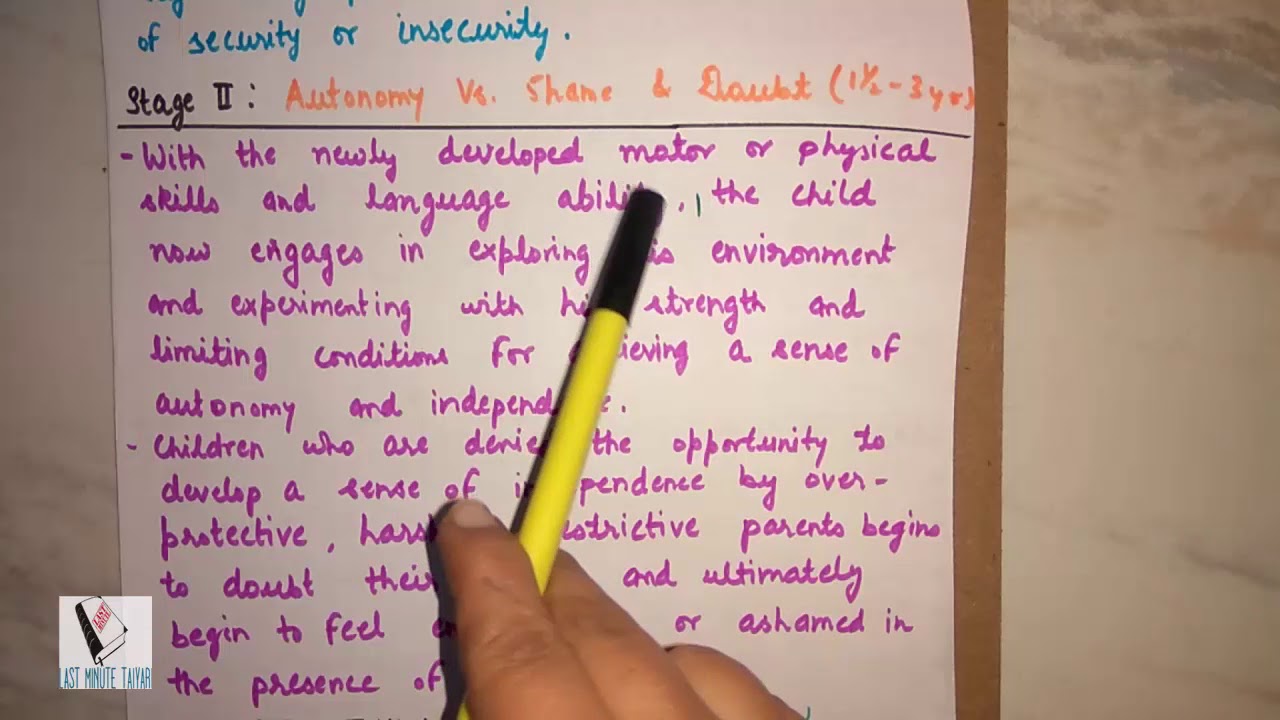 of security or insecurity.
Stage II: Autonomy Vs. Shame & Doubt (1½ - 3 yrs)
- With the newly developed motor or physical
skills and language ability, the child
now engages in exploring his environment
and experimenting with his strength and
limiting conditions for achieving a sense of
autonomy and independence.
- Children who are denied the opportunity to
develop a sense of independence by over-
protective, harsh restrictive parents begins
to doubt their and ultimately
begin to feel or ashamed in
the presence of
LAST MINUTE
LAST MINUTE TAIYARI